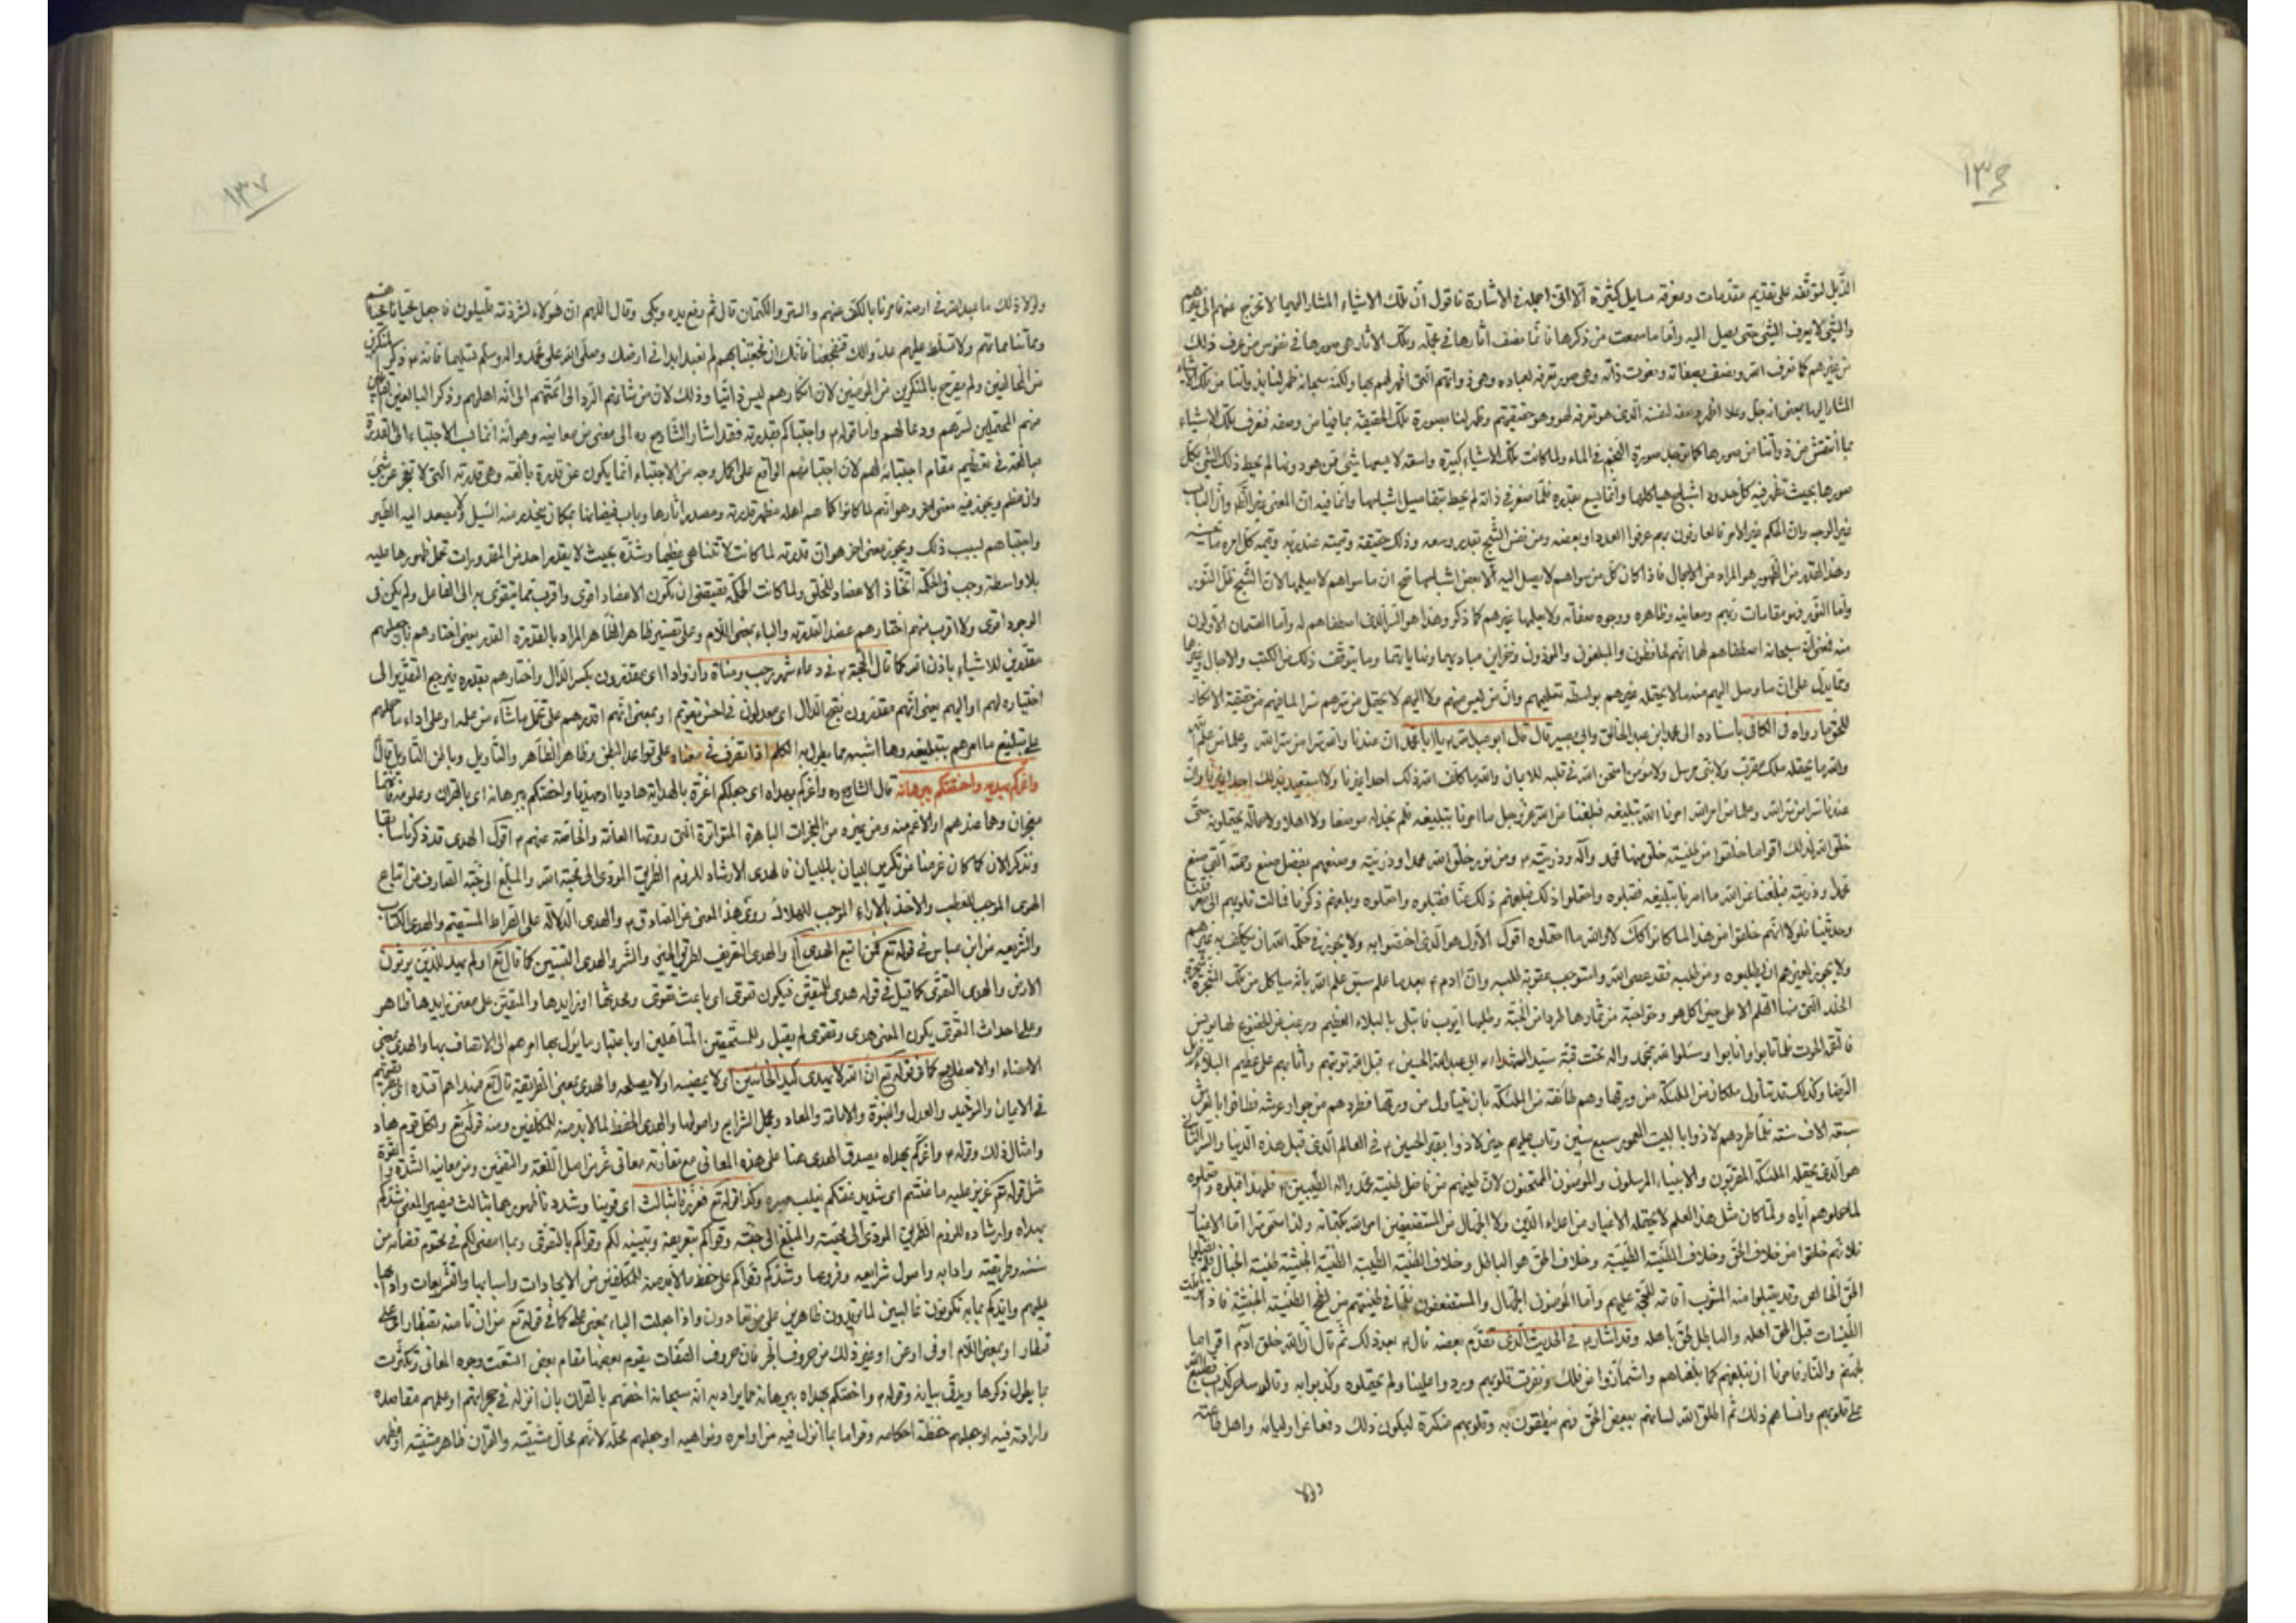 ١٣٦
الذيل لتوقفه على تقديم مقدمات ومعرفة مسايل كثيرة الا انى اجمل فى الاشارة فاقول ان تلك الاشياء المشار اليها لا تخرج عنهم الى غيرهم
والشئ لا يعرف الشئ حتى يصل اليه واما ما سمعت من ذكرها فانما نصف اثارها فى محله وتلك الاثار هى صورها فى نفوس من عرف ذلك
من غيرهم كما نعرف الله ونصف بصفاته ونعوت ذاته وهى صور تعرفه لعباده وهى ذواتهم التى ظهر لهم بها ولكنه سبحانه ظهر لنا بنا
المشار اليها بمعنى انه جل وعلا اظهر وصفه لنفسه الذى هو تعرفه لهم وهو حقيقتهم وظهر لنا بصورة تلك الحقيقة بما فينا من وصفه فنعرف تلك الاشياء
بما انتقش من ذواتنا من صورها كما تقبل صورة النجم فى الماء ولما كانت تلك الاشياء كبيرة واسعة لا يسعها شئ ممن هو دونها لم يحيط ذلك الشئ بكل
صورها بحيث تظهر فيه كل حدود اشباح هياكلها وانما يسع بقدره فلما صغر فى ذاته لم يحيط بتفاصيل اشباحها وانما فيه ان المعنى غير الكلام وان الباب
غير الوجه وان الحكم غير الامر فالعارفون بهم عرفوا العدد او بعضه ومن نفس الشبح بقدر وسعه وذلك حقيقة وقيمته عند ربه وقيمة كل امرء ما يحسنه
وهذا القدر من الظهور هو المراد من الاجمال فاذا كان كل من سواهم لا يصل اليه الا بعض اشباحها صح ان ما سواهم لا يعلمها لان الشبح ظل النور
واما النور فهو مقامات ربهم ومعانيه وظاهره ووجوه صفاته ولا يعلمها غيرهم كما ذكر وهذا هو السر الذى اصطفاهم له واما القسمان الاولان
منه فمعنى انه سبحانه اصطفاهم لهما انهم لحافظون والمبلغون والمؤدون وخزاين مباديها ونهاياتها وما يتوقف ذلك من الكتب والاجال وغيرها
ومما يدل على ان ما وصل اليهم منه ما لا يحتمله غيرهم بواسطة تعليمهم وان من ليس منهم ولا اليهم لا يحتمل من سرهم شرا لما فيهم من حقيقة الانكار
للحق ما رواه فى الكافى باسناده الى محمد بن عبد الخالق وابى بصير قال قال ابو عبد الله ع يا ابا محمد ان عندنا والله سرا من سر الله وعلما من علم الله
والله ما يحتمله ملك مقرب ولا نبى مرسل ولا مؤمن امتحن الله قلبه للايمان والله ما كلف الله ذلك احدا غيرنا ولا استعبد بذلك احدا غيرنا وان
عندنا سرا من سر الله وعلما من علم الله امرنا الله بتبليغه فبلغنا عن الله عز وجل ما امرنا بتبليغه فلم نجد له موضعا ولا اهلا ولا حمالة يحتملونه حتى
خلق الله لذلك اقواما خلقوا من طينة خلق منها محمد وآله وذريته ع ومن نور خلق الله محمدا وذريته وصنعهم بفضل صنع رحمته التى صنع
محمدا وذريته فبلغنا عن الله ما امرنا بتبليغه فقبلوه واحتملوا ذلك فبلغهم ذلك عنا فقبلوه واحتملوه وبلغهم ذكرنا فمالت قلوبهم الى معرفتنا
وحديثنا فلولا انهم خلقوا من هذا لما كانوا كذلك لا والله ما احتملوه اقول الاول هو الذى اختصوا به ولا يجوز فى حكمة الله ان يكلف به غيرهم
ولا يجوز لغيرهم ان يطلبوه ومن طلبه فقد عصى الله واستوجب عقوبة طلبه وان ادم ع بعد ما علم سبق علم الله بانه سياكل من تلك الشجرة شجرة
الخلد التى منها القلم الاعلى حين اكل هو وحوا حبة من ثمارها طردا من الجنة وطلبها ايوب فابتلى بالبلاء العظيم ورغب عن الخضوع لها يونس
فالتقمه الحوت فلما تابوا وانابوا وسئلوا الله بمحمد واله تحت قبة سيد الشهداء ابى عبد الله الحسين ع قبل الله توبتهم واثابهم على عظيم البلاء جزيل
الرضا وكذلك قد تناول ملكان من الملئكة من ورقها وهم طائفة من الملئكة بان يتناول من ورقها فطردهم من جوار عرشه فطافوا بالعرش
سبعة الاف سنة فلما طردهم لاذوا بالبيت المعمور سبع سنين وتاب عليهم حين لاذوا بقبر الحسين ع فى العالم الذى قبل هذه الدنيا والسر الثانى
هو الذى يحتمله الملئكة المقربون والانبياء المرسلون والمؤمنون الممتحنون لان طينتهم من فاضل طينة محمد واله الطيبين ع فلهذا قبلوه وحملوه
لما حملوهم اياه ولما كان مثل هذا العلم لا يحتمله الاغيار من اعداء الدين ولا الجهال من المستضعفين امر الله بكتمانه ولذا سمى سرا اما الاغيار
فلانهم خلقوا من خلاف الحق وخلاف الطينة الطيبة وخلاف الحق هو الباطل وخلاف الطينة الطيبة الطينة الخبيثة طينة الخبال
الحق الخالص وقد يقبلوا منه المشوب اقامة للحجة عليهم واما المؤمنون الجهال والمستضعفون فلما فى طينتهم من لطخ الطينة الخبيثة فاذا
الطينات قبل الحق اهله والباطل لحق باهله وقد اشار ع فى الحديث الذى تقدم بعضه قال ع بعد ذلك ثم قال ان الله خلق اقواما
لجهنم والنار فامرنا ان نبلغهم كما بلغناهم واشمأزوا من ذلك ونفرت قلوبهم وردوا علينا ولم يحتملوه وكذبوا به وقالوا ساحر كذاب فطبع الله
على قلوبهم وانساهم ذلك ثم اطلق الله لسانهم ببعض الحق فهم ينطقون به وقلوبهم منكرة ليكون ذلك دفعا عن اوليائه واهل طاعته
ولولا
١٣٧
ولولا ذلك ما عبد الله فى ارضه فامرنا بالكف عنهم والستر والكتمان قال ثم رفع يده وبكى وقال اللهم ان هؤلاء لشرذمة قليلون فاجعل محيانا محياهم
ومماتنا مماتهم ولا تسلط عليهم عدوا لك فتفجعنا فانك ان فجعتنا بهم لم تعبد ابدا فى ارضك وصلى الله على محمد واله وسلم تسليما فانه ع ذكر المنكرين
من المخالفين ولم يصرح بالمنكرين من المؤمنين لان انكارهم ليس ذاتيا وذلك لان من شانهم الرد الى ائمتهم الى الله اهلهم وذكر التابعين
منهم المحتملين لسرهم ودعا لهم واما قوله ع واجتباكم بقدرته فقد اشار الشارح ره الى معنى من معانيه وهو انه انما نسب الاجتباء الى القدرة
مبالغة فى تعظيم مقام اجتبائه لهم لان اجتبائهم الواقع على اكمل وجه من الاجتباء انما يكون عن قدرة بالغة وهى قدرته التى لا تعجز عن شئ
وان عظم ويجوز فيه معنى اخر وهو انهم لما كانوا كما هم اهله مظهر قدرته ومصدر اثارها وباب فيضانها بمكان ينحدر منه السيل ولا يصعد اليه الطير
واجتباهم لسبب ذلك ويجوز معنى اخر هو ان قدرته لما كانت لا تتناهى عظما وشدة بحيث لا يقدر احد من المقدورات تحمل ظهورها عليه
بلا واسطة وجب فى الحكمة اتخاذ الاعضاد للخلق ولما كانت الحكمة تقتضى ان تكون الاعضاد اقوى واقرب مما يتقوى به الى الفاعل ولم يكن فى
الوجود اقوى ولا اقرب منهم اختارهم عضدا لقدرته والباء بمعنى اللام وعلى تفسير ظاهر الظاهر المراد بالقدرة القدر يعنى اختارهم بان جعلهم
مقدرين للاشياء باذن الله كما قال الحجة ع فى دعاء شهر رجب ومناة وازوادا اى مقدرون بكسر الدال واختارهم بقدره فيرجع التقدير الى
اختياره لهم او اليهم يعنى انهم مقدرون بفتح الدال اى معدلون فى احسن تقويم او بمعنى انهم اقدرهم على تحمل ما شاء من علمه او على اداء ما حملهم
على تبليغ ما امرهم بتبليغه وما اشبه مما يطول به الكلام اذا تصرف فى معناه على قواعد الباطن وظاهر الظاهر والتأويل وباطن التأويل قال
واعزكم بهديه واختصكم ببرهانه قال الشارح ره واعزكم بهداه اى جعلكم اعزة بالهداية هاديا او مهديا واختصكم ببرهانه اى بالقران وعلومه فانها
معجزان وهما عندهم او الاعم منه ومن غيره من المعجزات الباهرة المتواترة التى روتها العامة والخاصة عنهم ع اقول الهدى قد ذكرنا سابقا
ونذكر الان كما كان غرضنا من تكرير البيان بالبيان فالهدى الارشاد للزوم الطريق المؤدى الى محبة الله والمبلغ الى جنته الصارف من اتباع
الهوى الموجب للعطب والاخذ بالاراء الموجب للهلاك روى هذا المعنى عن الصادق ع والهدى الدلالة على الصراط المستقيم والهدى الكتاب
والشريعة عن ابن عباس فى قوله تعالى فمن اتبع الهدى والهدى التعريف لطريق الخير والشر والهدى التبيين كما قال تعالى اولم يهد للذين يرثون
الارض والهدى التقوى كما قيل فى قوله هدى للمتقين فيكون تقوى اى باعث تقوى ومحدثها او تزايدها والمتقين على معنى تزايدها ظاهر
وعلى احداث التقوى يكون المعنى هدى وتقوى لم يقبل وللمستحقين المتاهلين او باعتبار ما يئول بها امرهم الى الاتصاف بها والهدى بمعنى
الامضاء او الاصلاح كما فى قوله تعالى ان الله لا يهدى كيد الخائنين اى لا يمضيه او لا يصلحه والهدى بمعنى الطريقة قال تعالى فبهداهم اقتده
فى الايمان والتوحيد والعدل والنبوة والامامة والمعاد ومجمل الشرايع واصولها والهدى الحفظ لما لا بد منه للمكلفين ومنه قوله تعالى ولكل قوم هاد
وامثال ذلك وقوله ع واعزكم بهداه يصدق الهدى هنا على هذه المعانى مع تفاوت معانى عز من اصل اللغة والتضمين ومن معانيه الشدة والقوة
مثل قوله تعالى عزيز عليه ما عنتم اى شديد عنتكم يغلب صبره وكذا قوله تعالى فعززنا بثالث اى قوينا وشددنا ظهورهما بثالث فيصير المعنى شددكم
بهداه وارشاده للزوم الطريق المؤدى الى محبته والمبلغ الى جنته وقواكم بتعريفه وتبيينه لكم وقواكم بالتقوى وبما امضى لكم فى محتوم قضائه من
سننه وطريقته وادابه واصول شرايعه وفروعها وشددكم وقواكم على حفظ ما لا بد منه للمكلفين من الايجادات واسبابها والتشريعات وادابها
عليهم وايدكم بما به تكونون غالبين لما تريدون ظاهرين على من تعادون واذا جعلت الباء بمعنى على كما فى قوله تعالى من ان تامنه بقنطار اى على
قنطار او بمعنى اللام او فى او عن او غير ذلك من حروف الجر فان حروف الصفات يقوم بعضها مقام بعض اتسعت وجوه المعانى وتكثرت
بما يطول ذكرها ويدق بيانه وقوله ع واختصكم ببرهانه مما يراد به انه سبحانه اختصهم بالقران بان انزله فى حجراتهم او علمهم مقاصده
وارادته فيه او جعلهم حفظة احكامه وقواما بما انزل فيه من اوامره ونواهيه او جعلهم محله لانهم محال مشيته والقران ظاهر مشيته